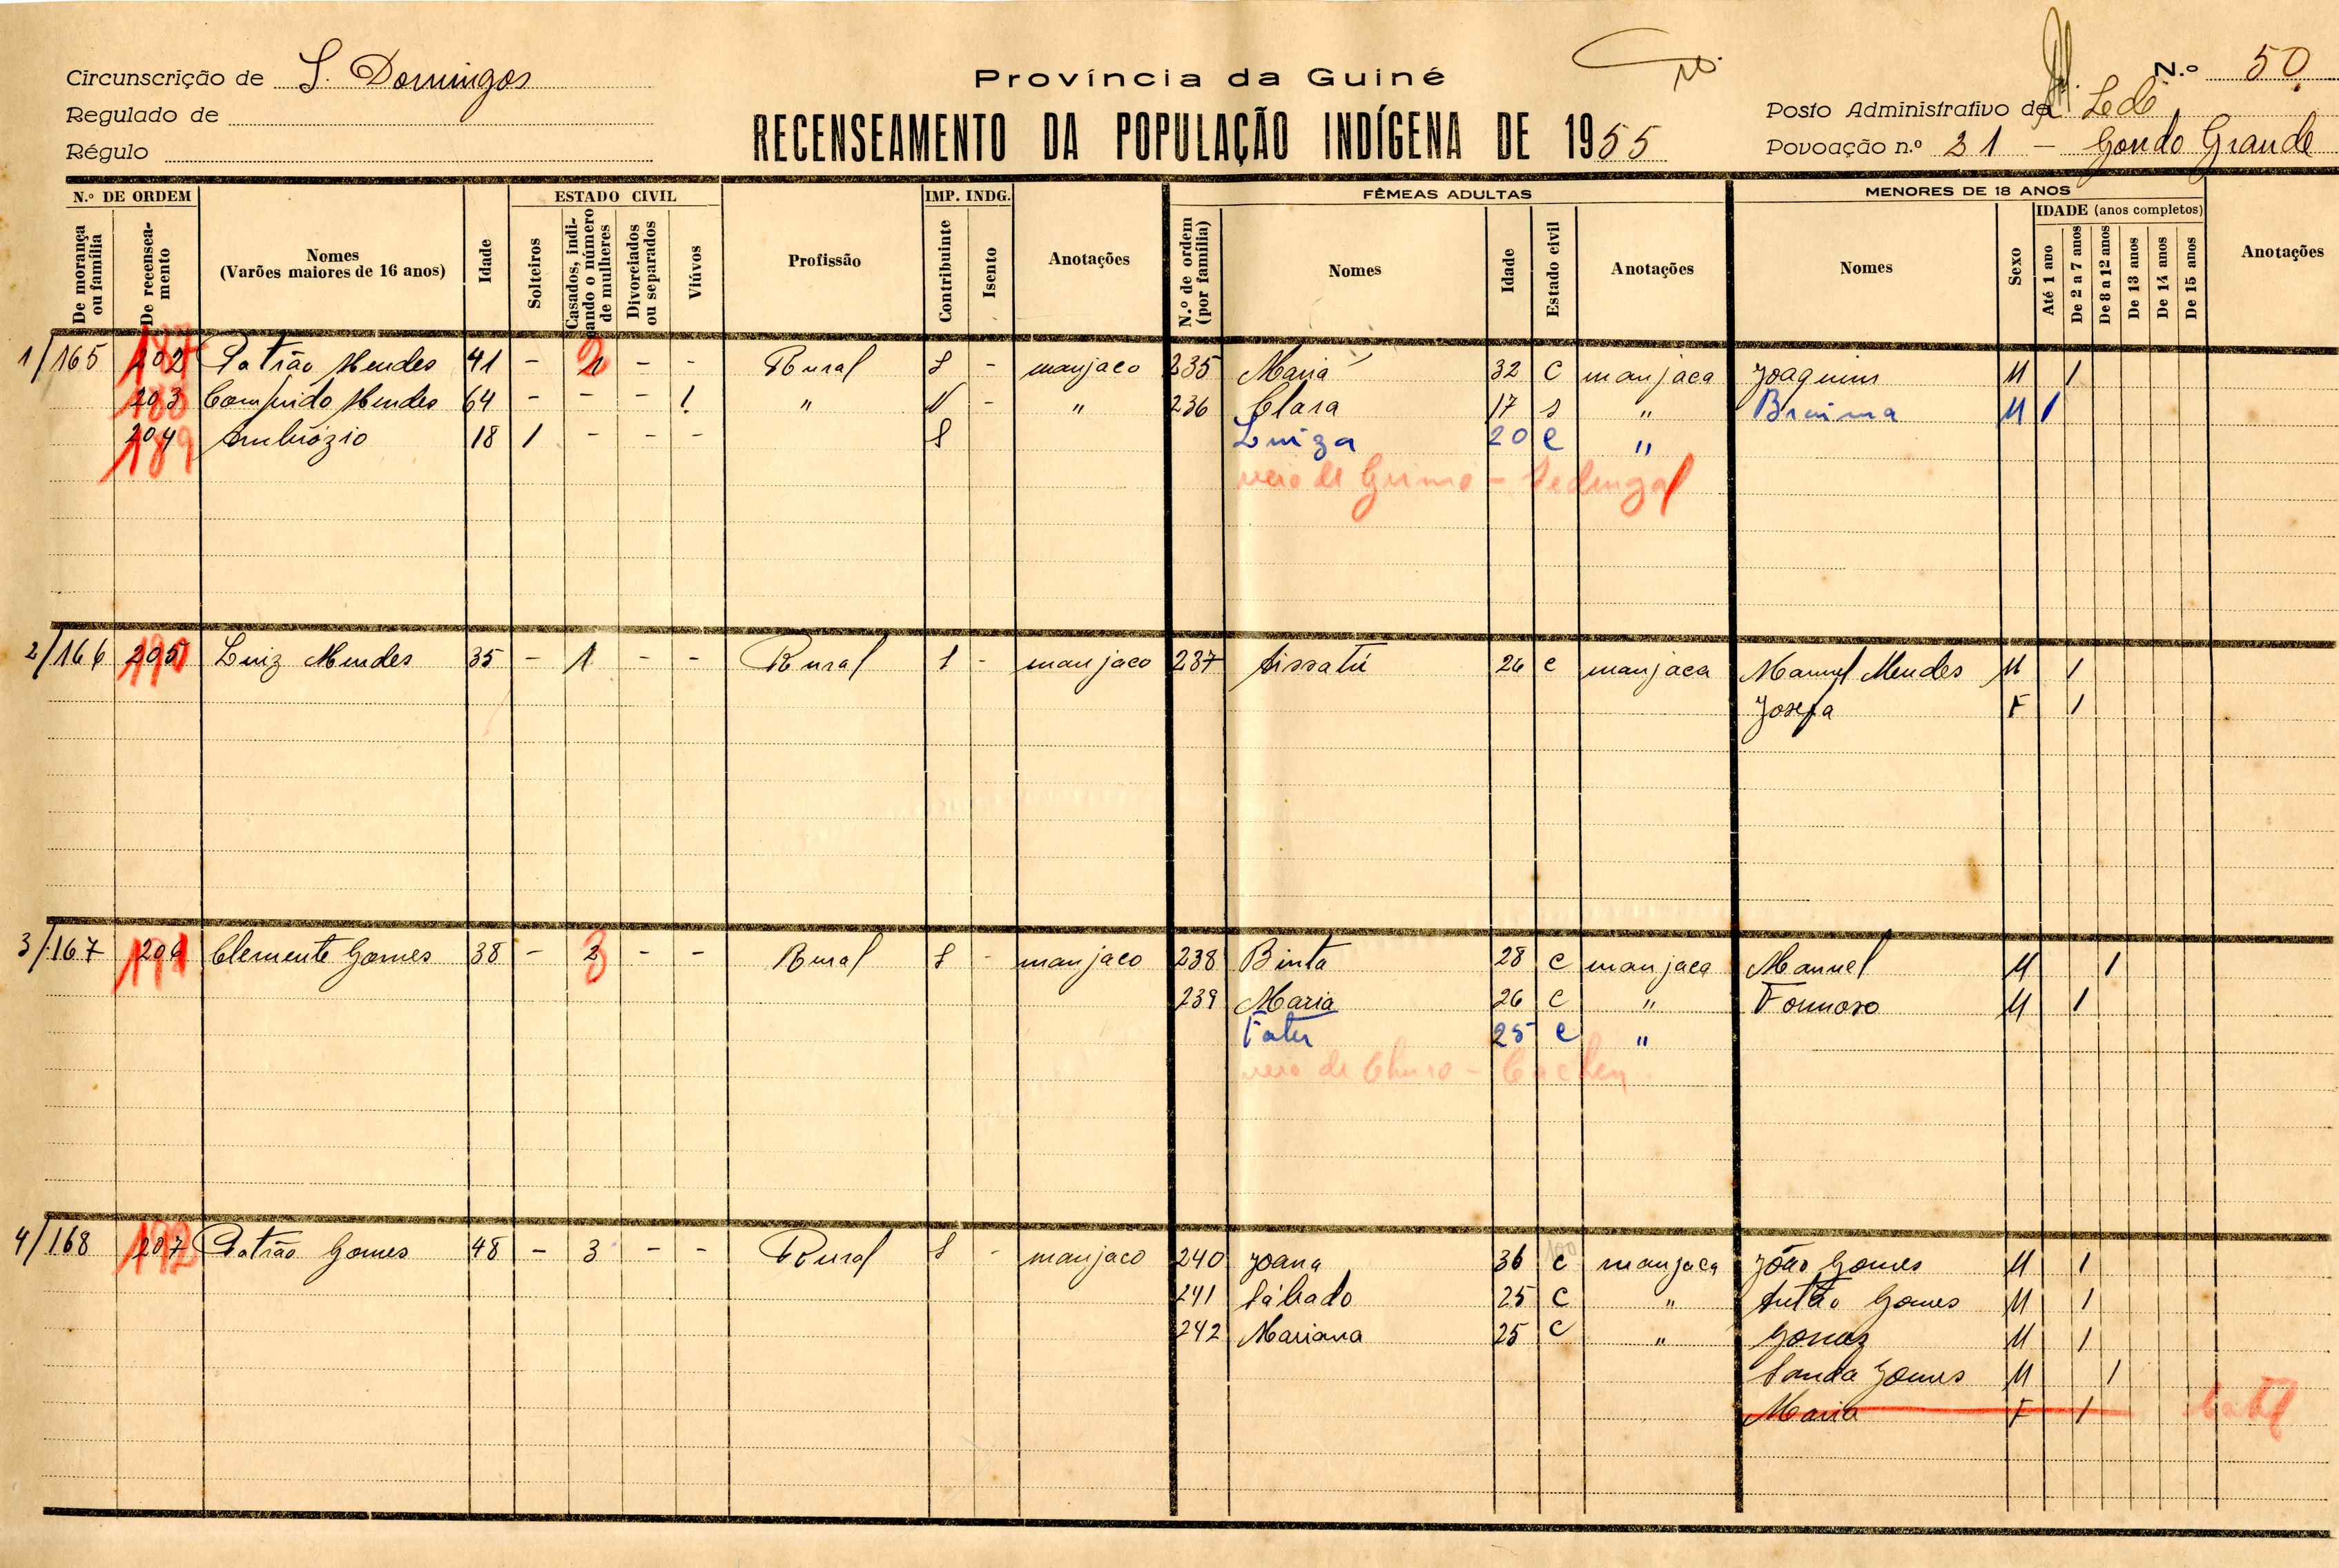 Circunscrição de S. Domingos
Regulado de
Régulo
Província da Guiné
RECENSEAMENTO DA POPULAÇÃO INDÍGENA DE 1955
N.º 50
Posto Administrativo de
Povoação n.º 21 - Gondo Grande
N.º DE ORDEM
De morança ou família
De recenseamento
Nomes
(Varões maiores de 16 anos)
Idade
ESTADO CIVIL
Solteiros
Casados, indicando o número de mulheres
Divorciados ou separados
Viúvos
Profissão
IMP. INDG.
Contribuinte
Isento
Anotações
FÊMEAS ADULTAS
N.º de ordem (por família)
Nomes
Idade
Estado civil
Anotações
MENORES DE 18 ANOS
Nomes
Sexo
IDADE (anos completos)
Até 1 ano
De 2 a 7 anos
De 8 a 12 anos
De 13 anos
De 14 anos
De 15 anos
Anotações
1/165 202 187 Patrão Mendes 41 - 2 - - Rural - manjaco 235 Maria 32 C manjaca Joaquim M 1
203 188 Comprido Mendes 64 - - - 1 " - " 236 Clara 17 s " Braima M 1
204 189 Ambrózio 18 1 - - - Luiza 20 C "
veio de - Sedengal
2/166 205 190 Luiz Mendes 35 - 1 - - Rural 1 - manjaco 237 Aissatú 26 C manjaca Manuel Mendes M 1
Josefa F 1
3/167 206 191 Clemente Gomes 38 - 3 - - Rural - manjaco 238 Binta 28 C manjaca Manuel M 1
239 Maria 26 C " Formoso M 1
25 C "
veio de Churo - Cacheu
4/168 207 192 Patrão Gomes 48 - 3 - - Rural - manjaco 240 Joana 36 C manjaca João Gomes M 1
241 Sábado 25 C " Antão Gomes M 1
242 Mariana 25 C " Gomes M 1
Gomes M 1
Maria F 1